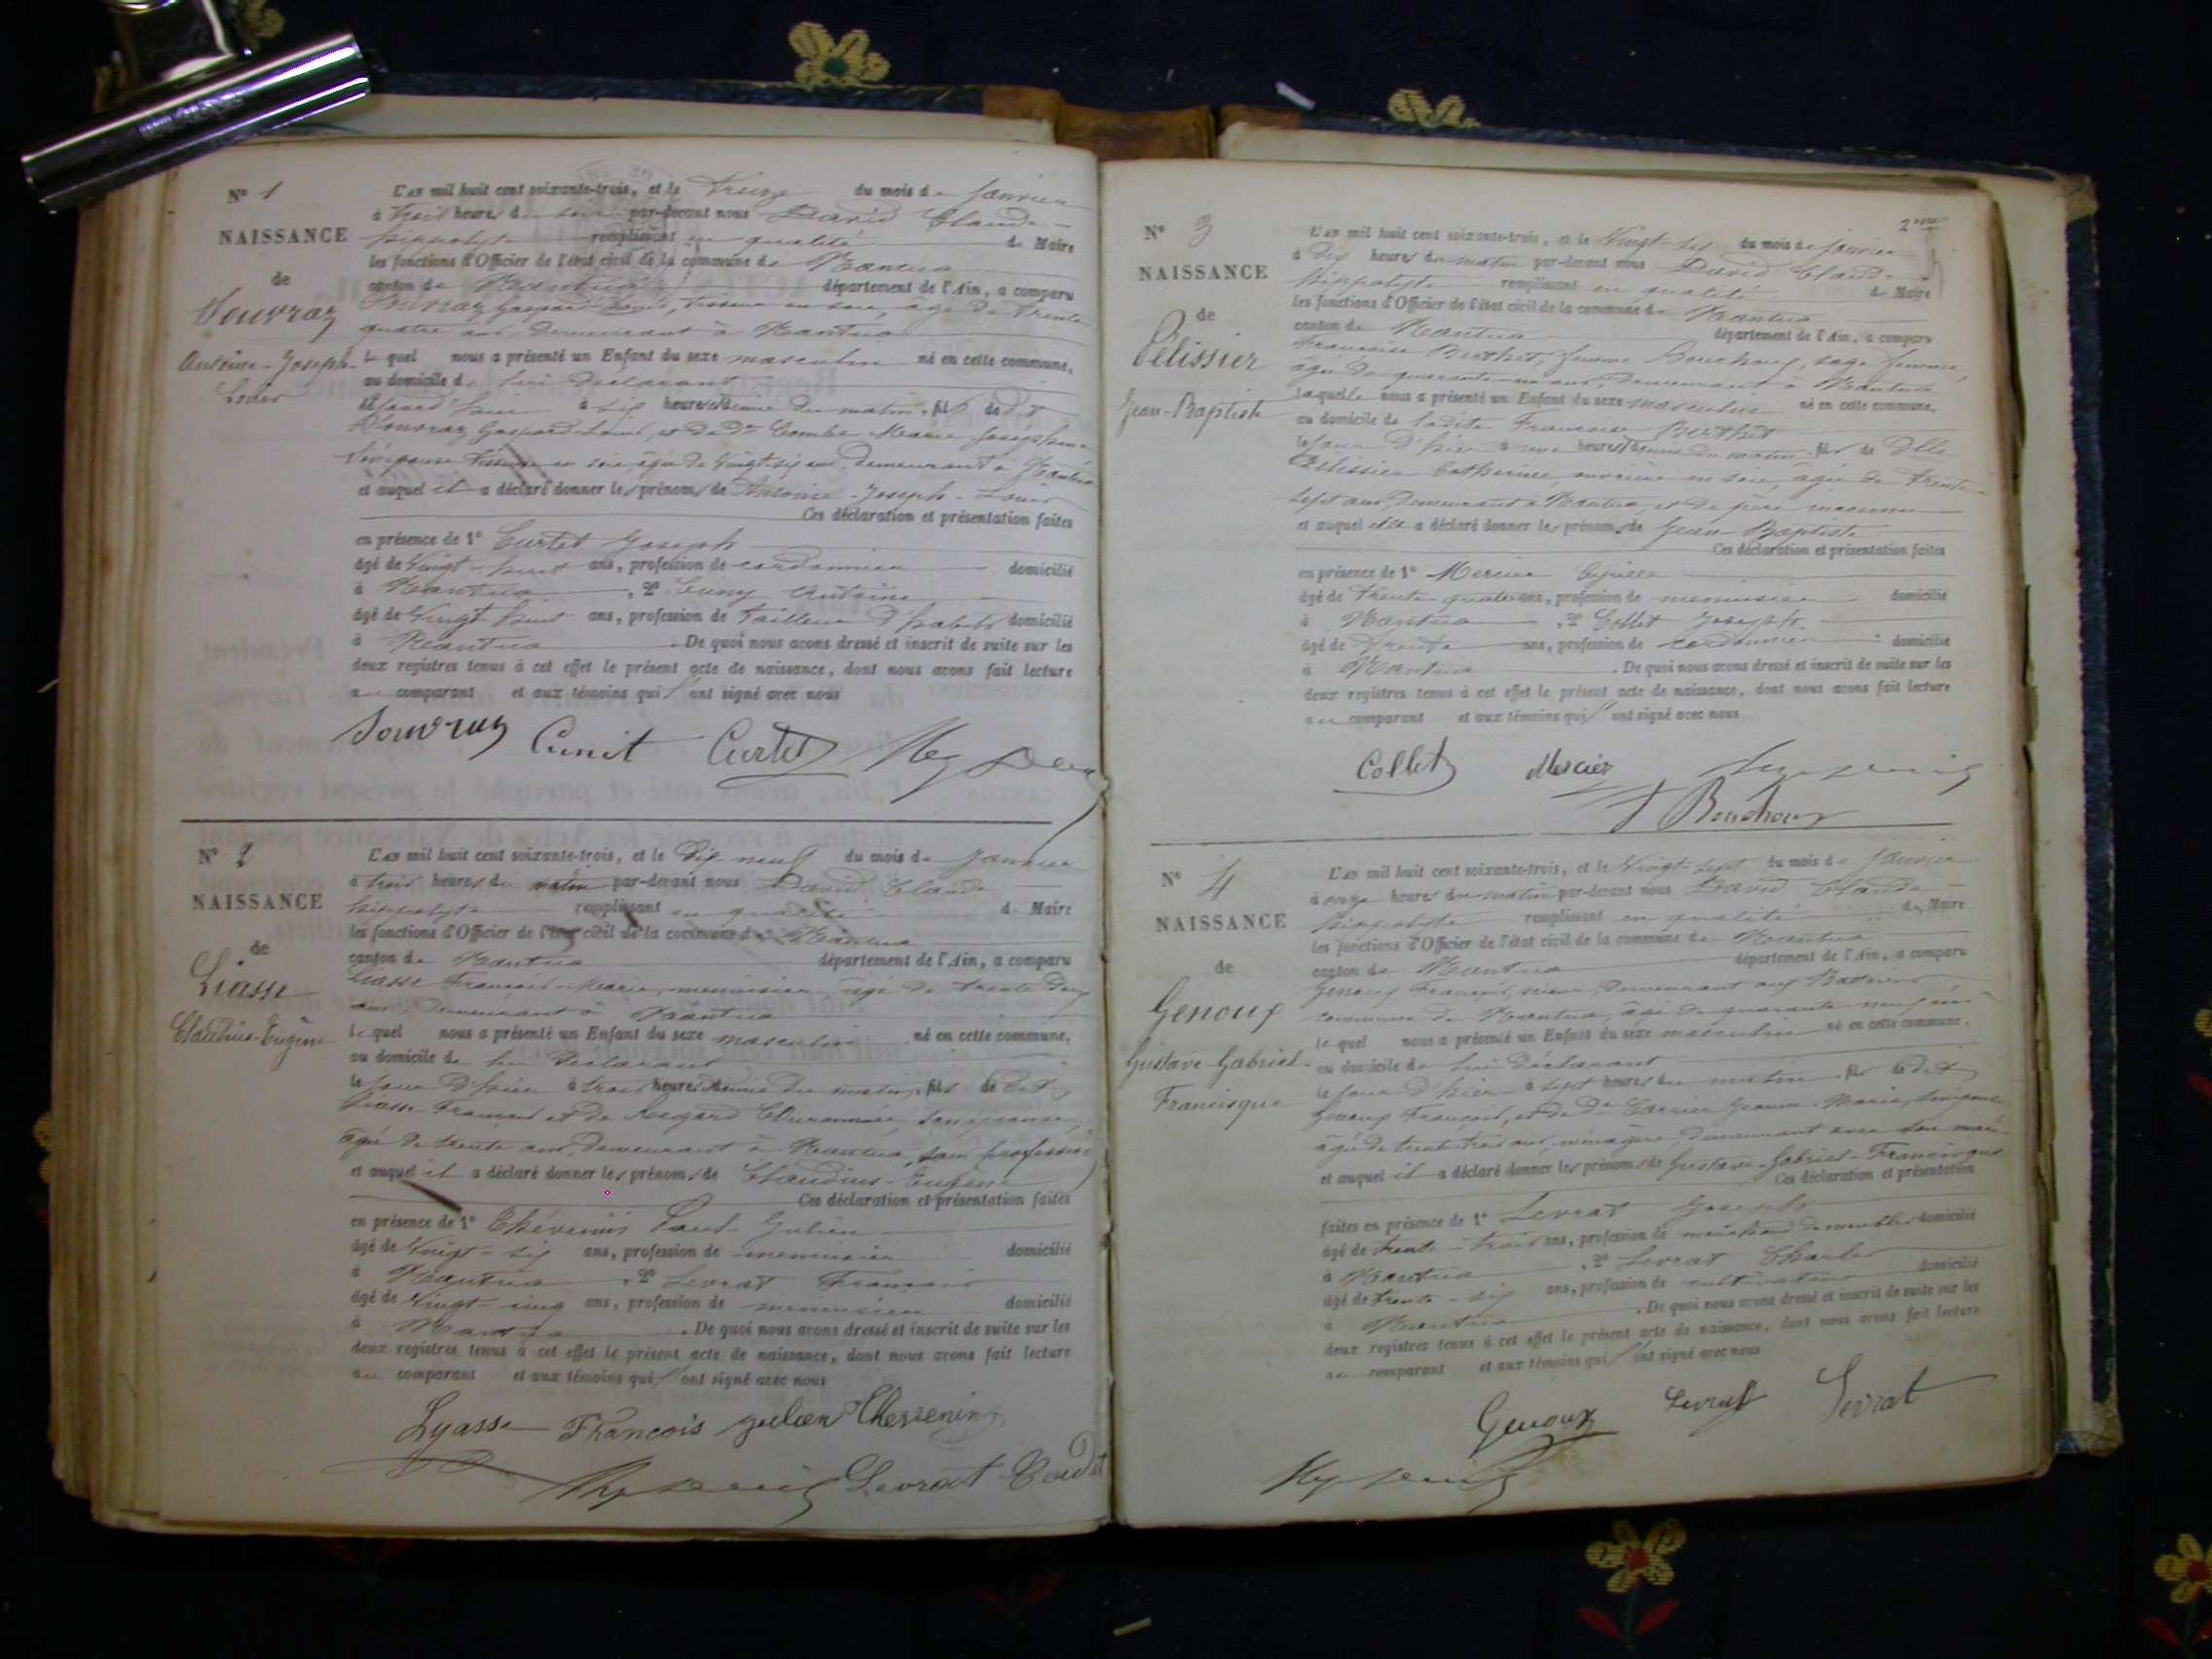 N° 1
NAISSANCE
de
Souvraz
Antoine-Joseph-
Louis
L'an mil huit cent soixante-trois, et le treize du mois de Janvier
à trois heures du soir par-devant nous David Claude-
hippolyte remplissant en qualité de Maire
les fonctions d'Officier de l'état civil de la commune de Nantua
canton de Nantua département de l'Ain, a comparu
Souvraz Gaspard-Louis, tisseur en soie, âgé de trente
quatre ans, demeurant à Nantua
lequel nous a présenté un Enfant du sexe masculin né en cette commune,
au domicile de lui déclarant
à six heures et demie du matin, fils de dt
Souvraz Gaspard-Louis, et de De Combe Marie-Josephine
son épouse tisseuse en soie âgée de vingt-six ans, demeurant à Nantua
et auquel il a déclaré donner les prénoms de Antoine-Joseph-Louis
Ces déclaration et présentation faites
en présence de 1° Curtet Joseph
âgé de vingt-huit ans, profession de cordonnier domicilié
à Nantua, 2° Antoine
âgé de vingt huit ans, profession de tailleur d'habits domicilié
à Nantua. De quoi nous avons dressé et inscrit de suite sur les
deux registres tenus à cet effet le présent acte de naissance, dont nous avons fait lecture
au comparant et aux témoins qui l'ont signé avec nous
Souvraz Cunit Curtet Hyp David
N° 2
NAISSANCE
de
Liasse
Claudius-Eugène
L'an mil huit cent soixante-trois, et le dix neuf du mois de Janvier
à trois heures du matin par-devant nous David Claude
hippolyte remplissant en qualité de Maire
les fonctions d'Officier de l'état civil de la commune de Nantua
canton de Nantua département de l'Ain, a comparu
Liasse François-Marie, menuisier âgé de trente deux
ans, demeurant à Nantua
lequel nous a présenté un Enfant du sexe masculin né en cette commune,
au domicile de lui déclarant
le jour d'hier à trois heures et demie du matin, fils de dt
Liasse François et de son épouse,
âgée de trente ans, demeurant à Nantua, sans profession
et auquel il a déclaré donner les prénoms de Claudius-Eugène
Ces déclaration et présentation faites
en présence de 1° Thévenin Paul-Julien
âgé de vingt-six ans, profession de menuisier domicilié
à Nantua, 2° Levrat François
âgé de vingt-cinq ans, profession de menuisier domicilié
à Nantua. De quoi nous avons dressé et inscrit de suite sur les
deux registres tenus à cet effet le présent acte de naissance, dont nous avons fait lecture
au comparant et aux témoins qui l'ont signé avec nous
Lyasse François julien Thevenin
Hyp David Levrat Cadet
2me
N° 3
NAISSANCE
de
Pelissier
Jean-Baptiste
L'an mil huit cent soixante-trois, et le vingt-six du mois de Janvier
à dix heures du matin par-devant nous David Claude-
hippolyte remplissant en qualité de Maire
les fonctions d'Officier de l'état civil de la commune de Nantua
canton de Nantua département de l'Ain, a comparu
Françoise Berthet, femme Bouchoux, sage femme,
âgée de quarante-un ans, demeurant à Nantua
laquelle nous a présenté un Enfant du sexe masculin né en cette commune,
au domicile de ladite Françoise Berthet
le jour d'hier à une heure et demie du matin, fils de Dlle
Pélissier Catherine, ouvrière en soie, âgée de trente
sept ans, demeurant à Nantua, et de père inconnu
et auquel elle a déclaré donner les prénoms de Jean-Baptiste
Ces déclaration et présentation faites
en présence de 1° Mercier Cyrille
âgé de trente quatre ans, profession de menuisier domicilié
à Nantua, 2° Collet Joseph
âgé de trente ans, profession de cordonnier domicilié
à Nantua. De quoi nous avons dressé et inscrit de suite sur les
deux registres tenus à cet effet le présent acte de naissance, dont nous avons fait lecture
au comparant et aux témoins qui l'ont signé avec nous
Collet Mercier Hyp David
F Bouchoux
N° 4
NAISSANCE
de
Genoux
Gustave-Gabriel-
Francisque
L'an mil huit cent soixante-trois, et le vingt-sept du mois de Janvier
à onze heures du matin par-devant nous David Claude
hippolyte remplissant en qualité de Maire
les fonctions d'Officier de l'état civil de la commune de Nantua
canton de Nantua département de l'Ain, a comparu
Genoux François, demeurant aux
commune de Nantua, âgé de quarante-neuf ans
lequel nous a présenté un Enfant du sexe masculin né en cette commune,
au domicile de lui déclarant
le jour d'hier à sept heures du matin, fils de dt
Genoux François, et de De Carrier Jeanne-Marie, son épouse
âgée de trente trois ans, ménagère, demeurant avec son mari
et auquel il a déclaré donner les prénoms de Gustave-Gabriel-Francisque
Ces déclaration et présentation
faites en présence de 1° Levrat Joseph
âgé de trente-trois ans, profession de marchand de meubles domicilié
à Nantua, 2° Levrat Charles
âgé de trente-six ans, profession de cultivateur domicilié
à Nantua. De quoi nous avons dressé et inscrit de suite sur les
deux registres tenus à cet effet le présent acte de naissance, dont nous avons fait lecture
au comparant et aux témoins qui l'ont signé avec nous
Genoux Levrat Levrat
Hyp David